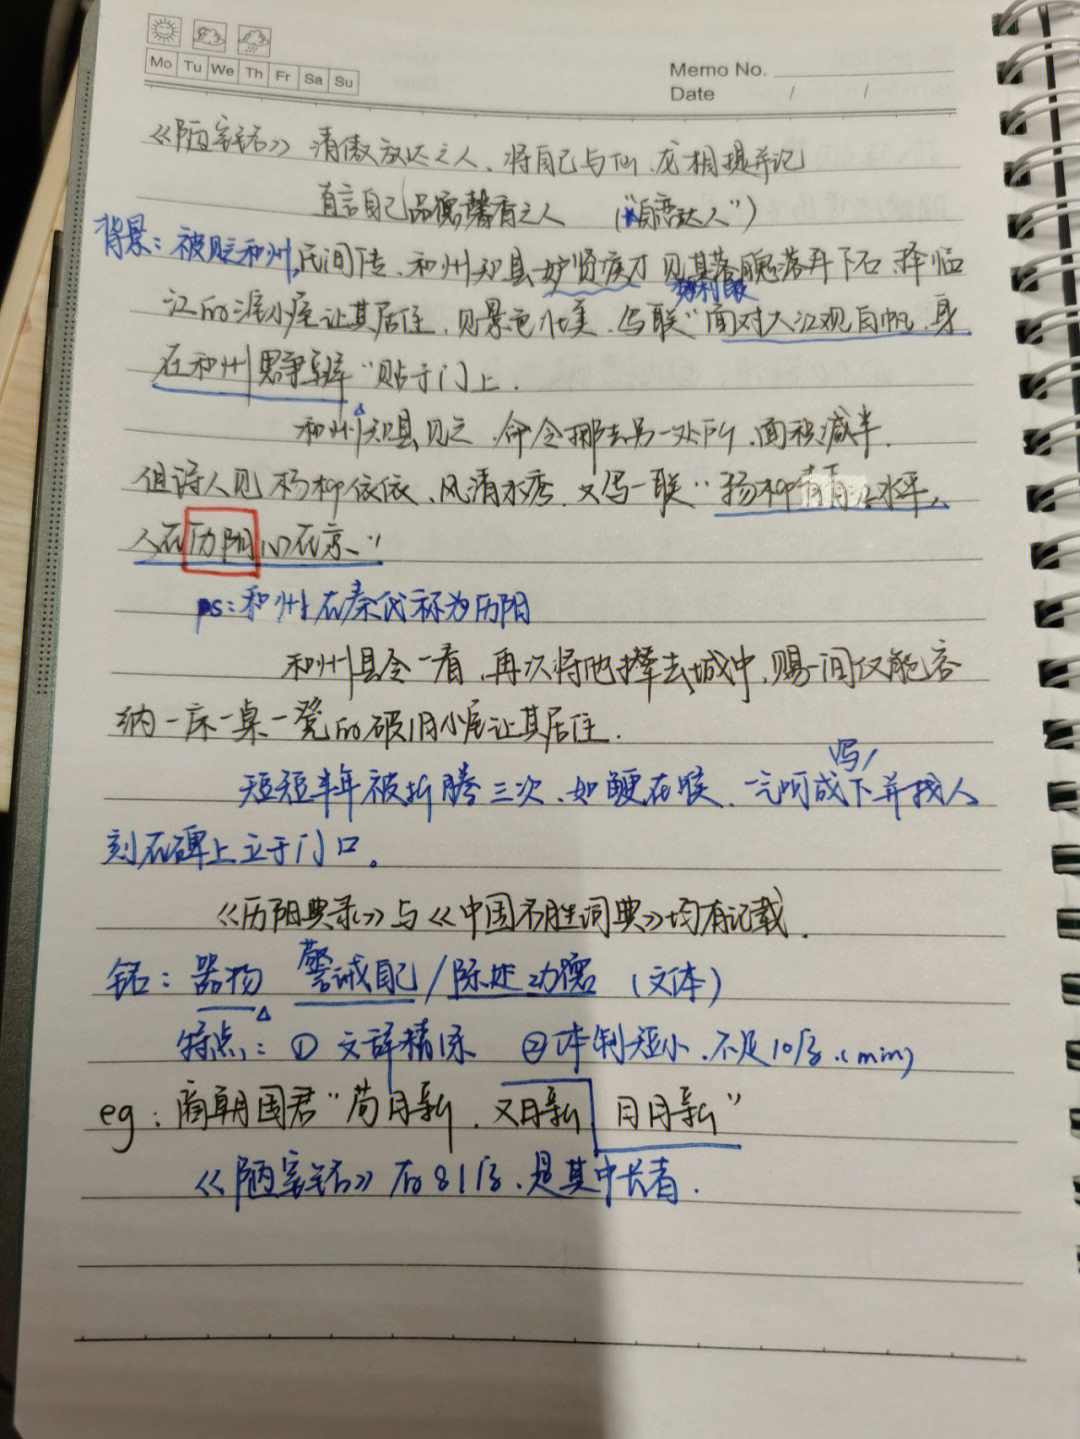 Mo Tu We Th Fr Sa Su
Memo No.
Date / /
《陋室铭》 清傲放达之人、将自己与仙、龙相提并论
直言自己品德馨香之人 ("自恋达人")
背景：被贬和州,民间传、和州知县妒贤疾才 见其落魄落井下石、择临
势利眼
江的小屋让其居住、见景色壮美、写联"面对大江观白帆、身
在和州思争辩"贴于门上.
和州知县见之、命令挪去另一处所、面积减半.
但诗人见杨柳依依、风清水秀、又写一联"扬柳青青江水平、
人在历阳心在京、"
ps:和州在秦代称为历阳
和州县令一看、再次将他撵去城中、赐一间仅能容
纳一床一桌一凳的破旧小屋让其居住.
写
短短半年被折腾三次、如鲠在喉、一气呵成下并找人
刻在碑上立于门口。
《历阳典录》与《中国名胜词典》均有记载.
铭：器物 警诫自己/陈述功德 (文体)
特点：① 文辞精练 ②体制短小、不足10字、(min)
eg：商朝国君"苟日新、又日新 日日新"
《陋室铭》有81字、是其中长者.